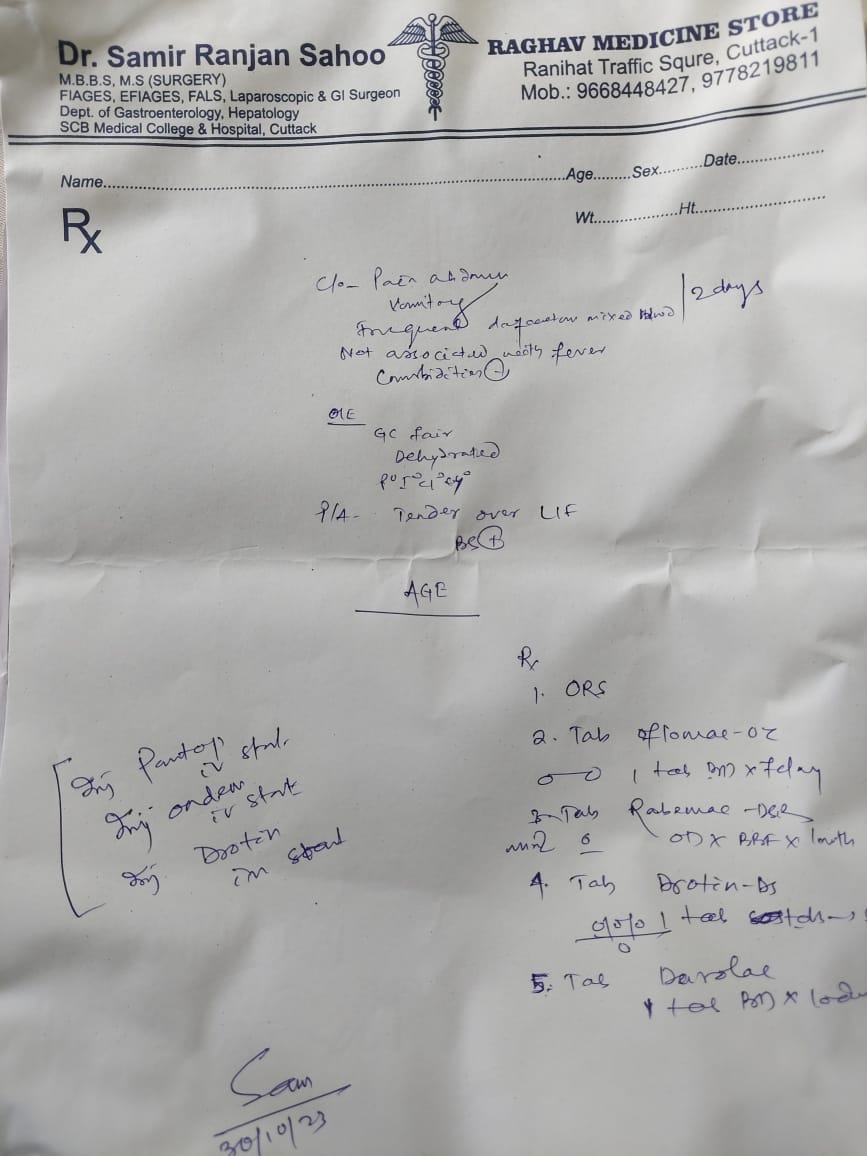 Dr. Samir Ranjan Sahoo
M.B.B.S, M.S (SURGERY)
FIAGES, EFIAGES, FALS, Laparoscopic & GI Surgeon
Dept. of Gastroenterology, Hepatology
SCB Medical College & Hospital, Cuttack
RAGHAV MEDICINE STORE
Ranihat Traffic Squre, Cuttack-1
Mob.: 9668448427, 9778219811
Name.......... Age........ Sex......... Date..........
Wt.......... Ht..........
Rx
C/o- Pain abdmen
Vomiting
Frequent mixed /2 days
Not associated with fever
GC fair
Dehydrated
P/A- Tender over LIF
BS (+)
AGE
Rx
1. ORS
2. Tab Oflomac-OZ
1 tab BD x 7 day
3. Tab Rabemac-DSR
OD x BBF x 1 month
4. Tab Drotin-DS
1 tab
5. Tab Darolac
1 tab BD x
Inj Pantop
iv stat.
Inj ondem
iv stat
Inj. Drotin
im stat
30/10/23